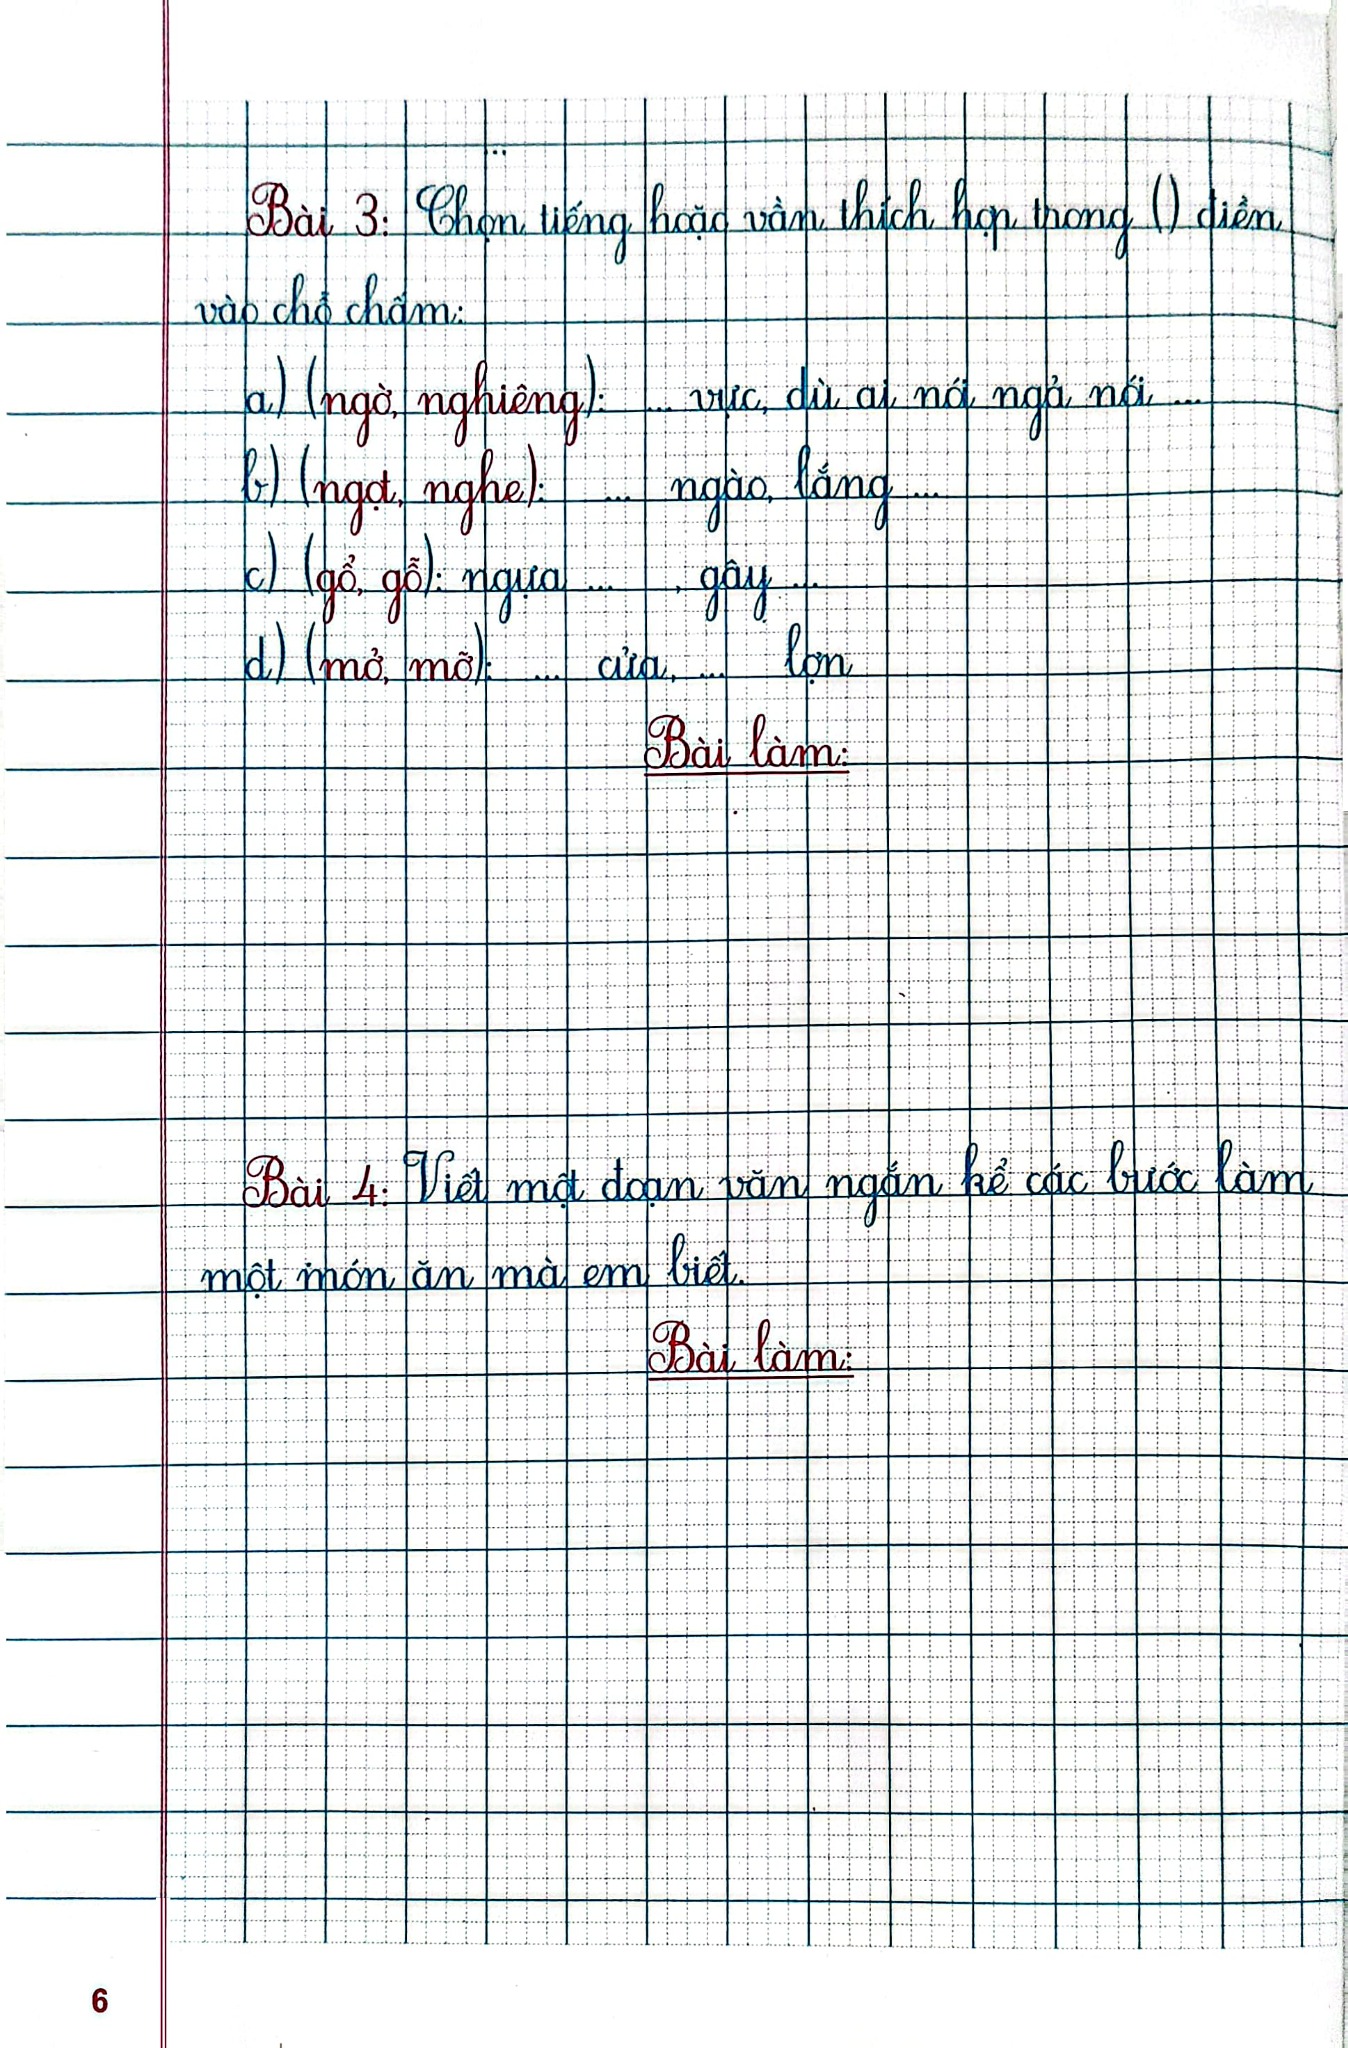 ...
Bài 3: Chọn tiếng hoặc vần thích hợp trong () điền
vào chỗ chấm:
a) (ngờ, nghiêng): ... vực, dù ai nói ngả nói ...
b) (ngọt, nghe): ... ngào, lắng ...
c) (gổ, gỗ): ngựa ... , gây ...
d) (mở, mỡ): ... cửa, ... lợn
Bài làm:
Bài 4: Viết một đoạn văn ngắn kể các bước làm
một món ăn mà em biết.
Bài làm:
6